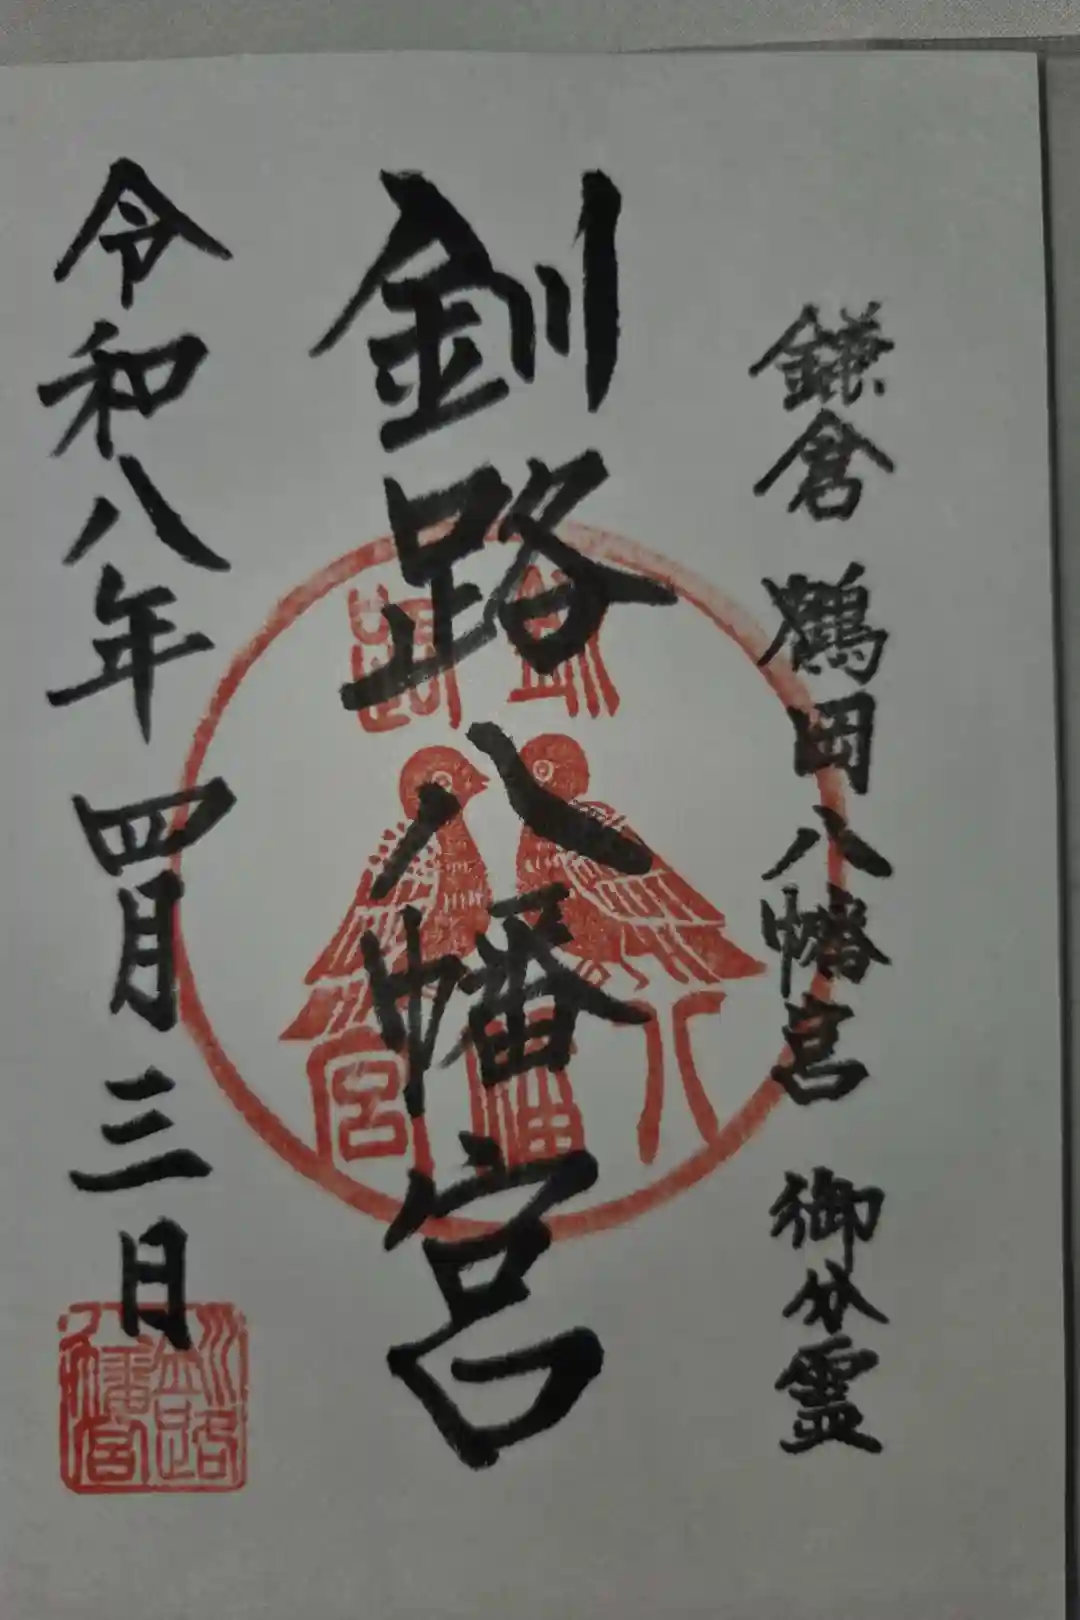 鎌倉 鶴岡八幡宮 御分霊
釧路八幡宮
令和八年 四月 三日
釧路
八幡宮
釧路
八幡宮